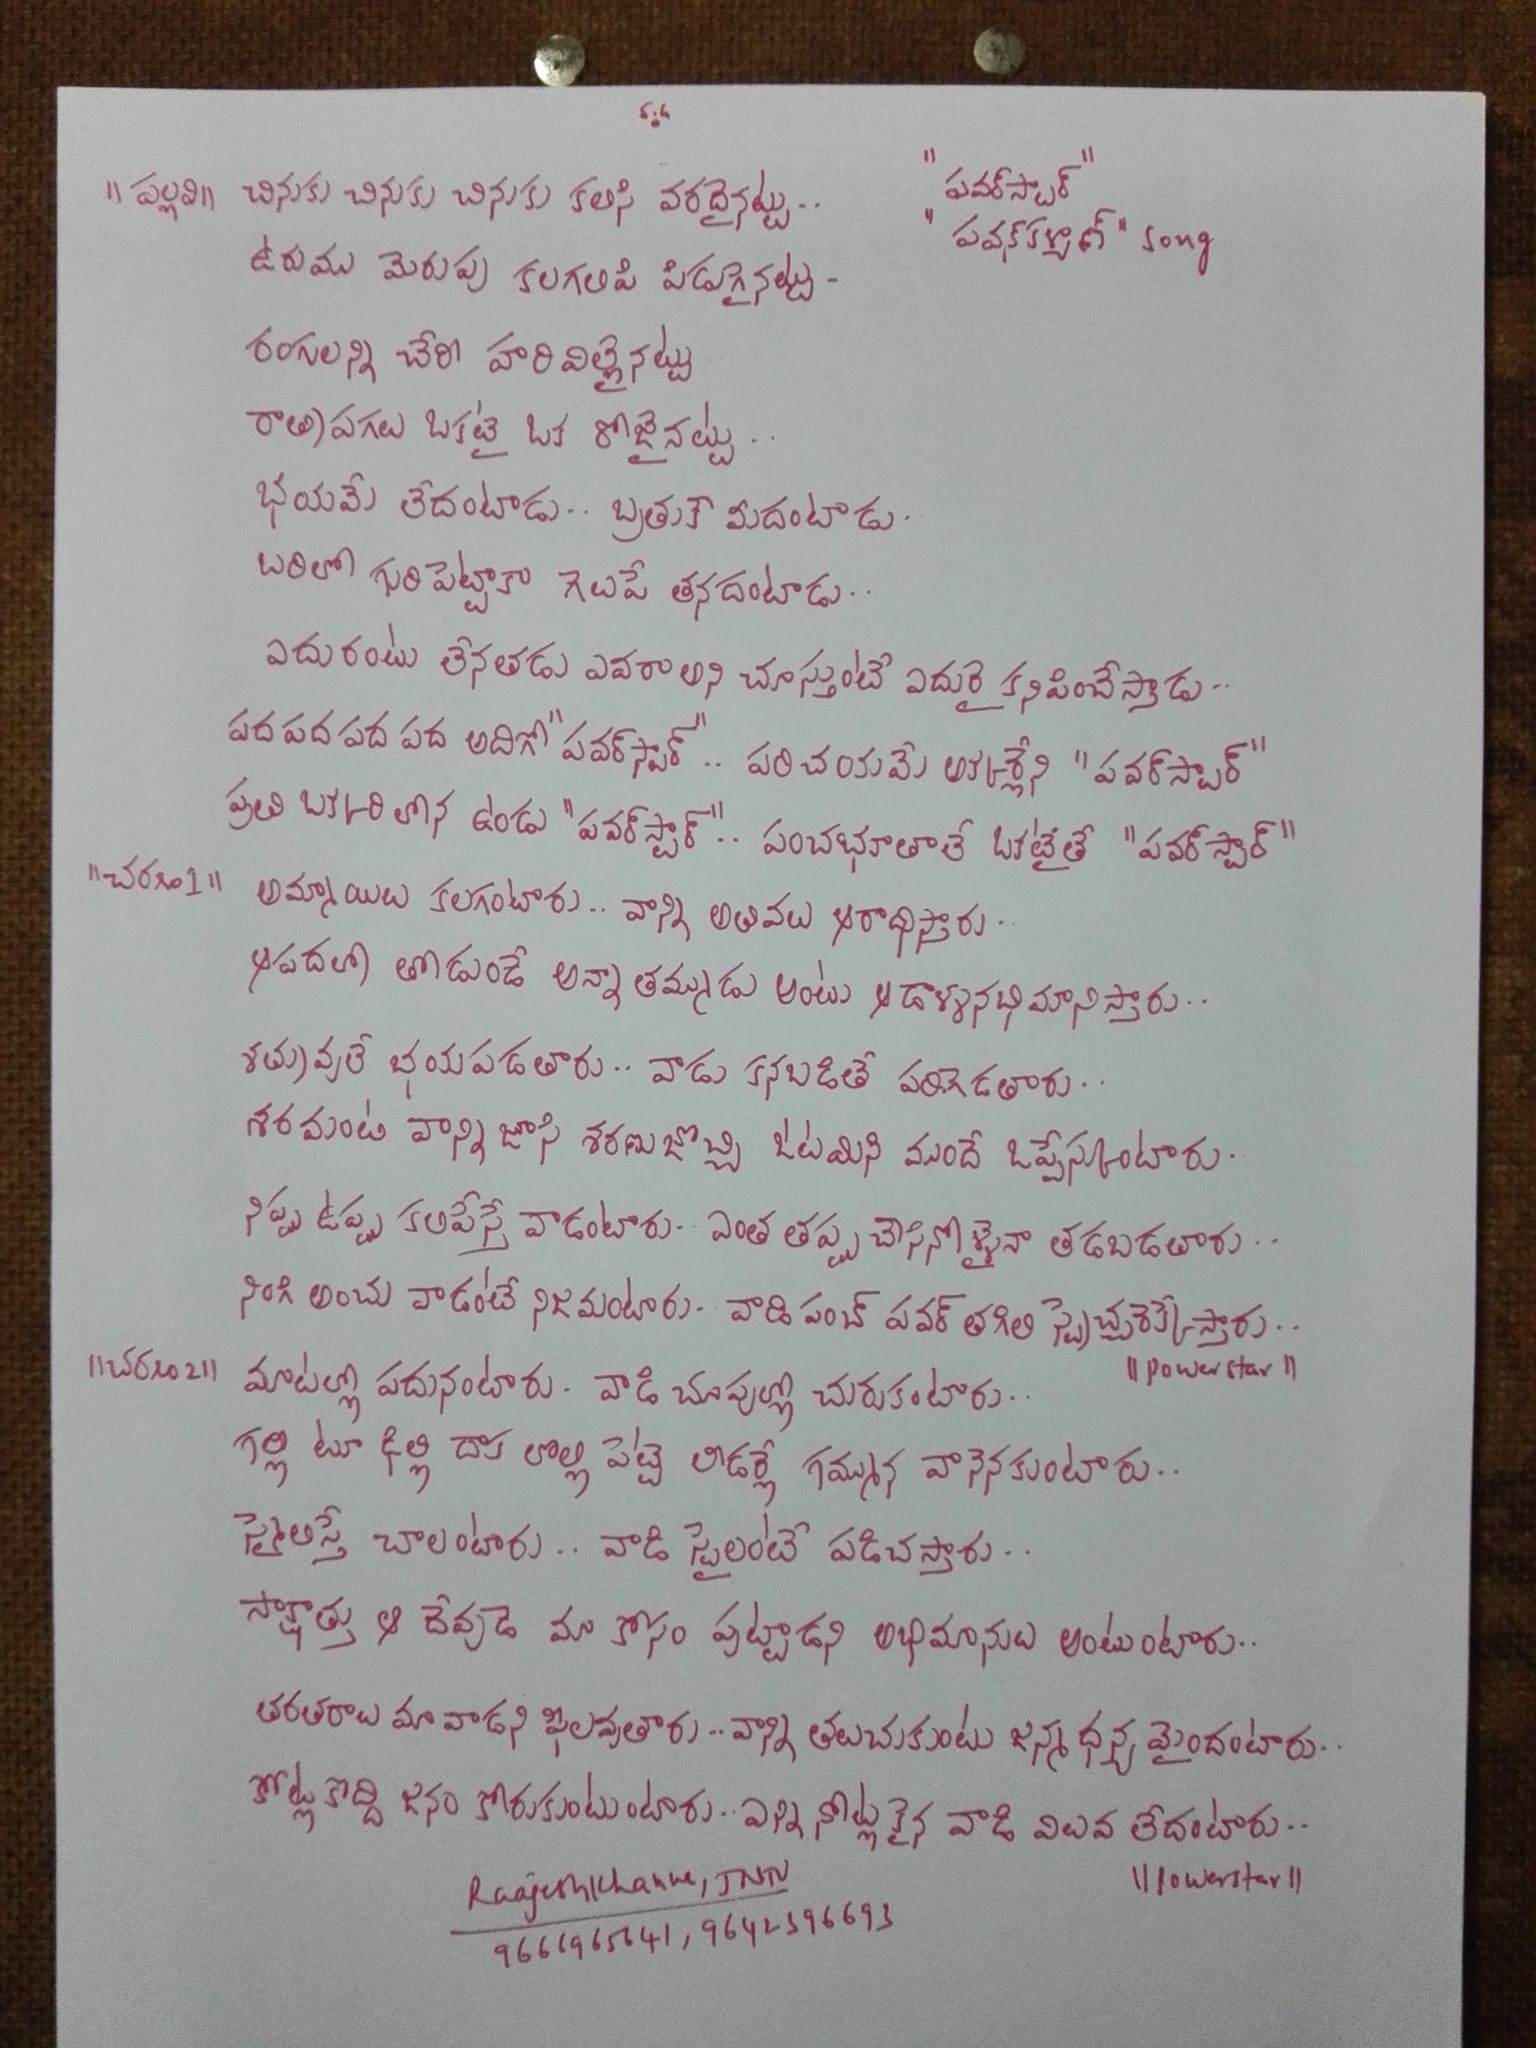 "పవర్‌స్టార్"
"పల్లవి" చినుకు చినుకు చినుకు కలసి వరదైనట్టు..
"పవన్‌కళ్యాణ్" song
ఉరుము మెరుపు కలగలిపి పిడుగైనట్టు -
రంగులన్ని చేరి హరివిల్లైనట్టు
రాత్రిపగలు ఒకటై ఒక రోజైనట్టు..
భయమే లేదంటాడు.. బ్రతుకే మీదంటాడు.
బరిలో గురిపెట్టాకా గెలుపే తనదంటాడు..
ఎదురంటు లేనతడు ఎవరా అని చూస్తుంటే ఎదురై కనిపించేస్తాడు..
పద పద పద పద అదిగో "పవర్‌స్టార్".. పరిచయమే అక్కర్లేని "పవర్‌స్టార్"
ప్రతి ఒక్కరిలోన ఉండు "పవర్‌స్టార్".. పంచభూతాలే ఒకటైతే "పవర్‌స్టార్"
"చరణం1" అమ్మాయిలు కలగంటారు.. వాన్ని అతివలు ఆరాధిస్తారు..
ఆపదలో తోడుండే అన్నా తమ్ముడు అంటు ఆడాళ్ళనభిమానిస్తారు..
శత్రువులే భయపడతారు.. వాడు కనబడితే పరిగెడతారు..
శరమంటి వాన్ని జూసి శరణుజొచ్చి ఓటమిని ముందే ఒప్పేస్కుంటారు.
నిప్పు ఉప్పు కలిపేస్తే వాడంటారు.. ఎంత తప్పు చేసినోళ్ళైనా తడబడతారు..
నింగి అంచు వాడంటే నిజమంటారు.. వాడి పంచ్ పవర్ తగిలి స్విచ్చురెక్కేస్తారు..
"powerstar"
"చరణం2" మాటల్లో పదునంటారు. వాడి చూపుల్లో చురుకంటారు..
గల్లి టూ ఢిల్లి దాక లొల్లి పెట్టె లీడర్లే గమ్మున వానెనకుంటారు..
స్మైలిస్తే చాలంటారు.. వాడి స్టైలంటే పడిచస్తారు..
సాక్షాత్తు ఆ దేవుడె మా కోసం పుట్టాడని అభిమానులు అంటుంటారు..
తరతరాలు మా వాడని ఫీలవుతారు.. వాన్ని తలుచుకుంటు జన్మ ధన్యమైందంటారు..
కోట్లకొద్ది జనం కోరుకుంటుంటారు.. ఎన్ని నోట్లకైన వాడి విలువ లేదంటారు..
"powerstar"
Raajeshkhanna, JNN
9666965641, 9642396693